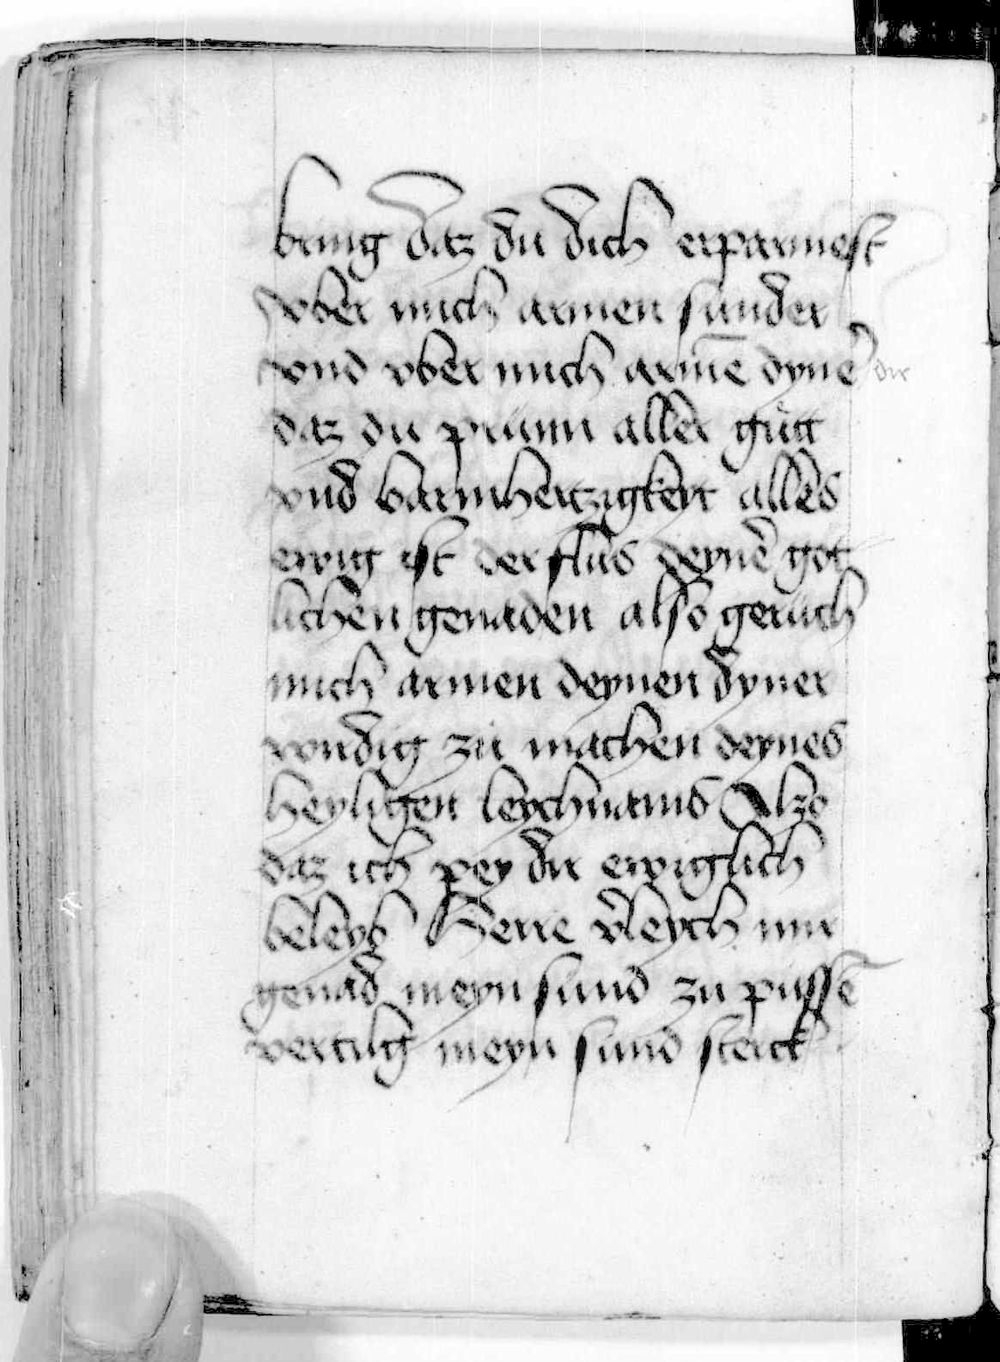 bring daz du dich erparmest
vber mich armen sunder
vnd vber mich armē dynē dir
daz du prunn aller gutt
vnd barmhertzigkeit alles
ewig ist der flus deynē got
lichen genaden also geruch
mich armen deynen dyner
wirdig zu machen deynes
heyligen leychnams Alzo
daz ich pey dir ewiglich
beleyb Herre v̄leych mir
genad meyn sund zu pussē
vertilg meyn sund sterck